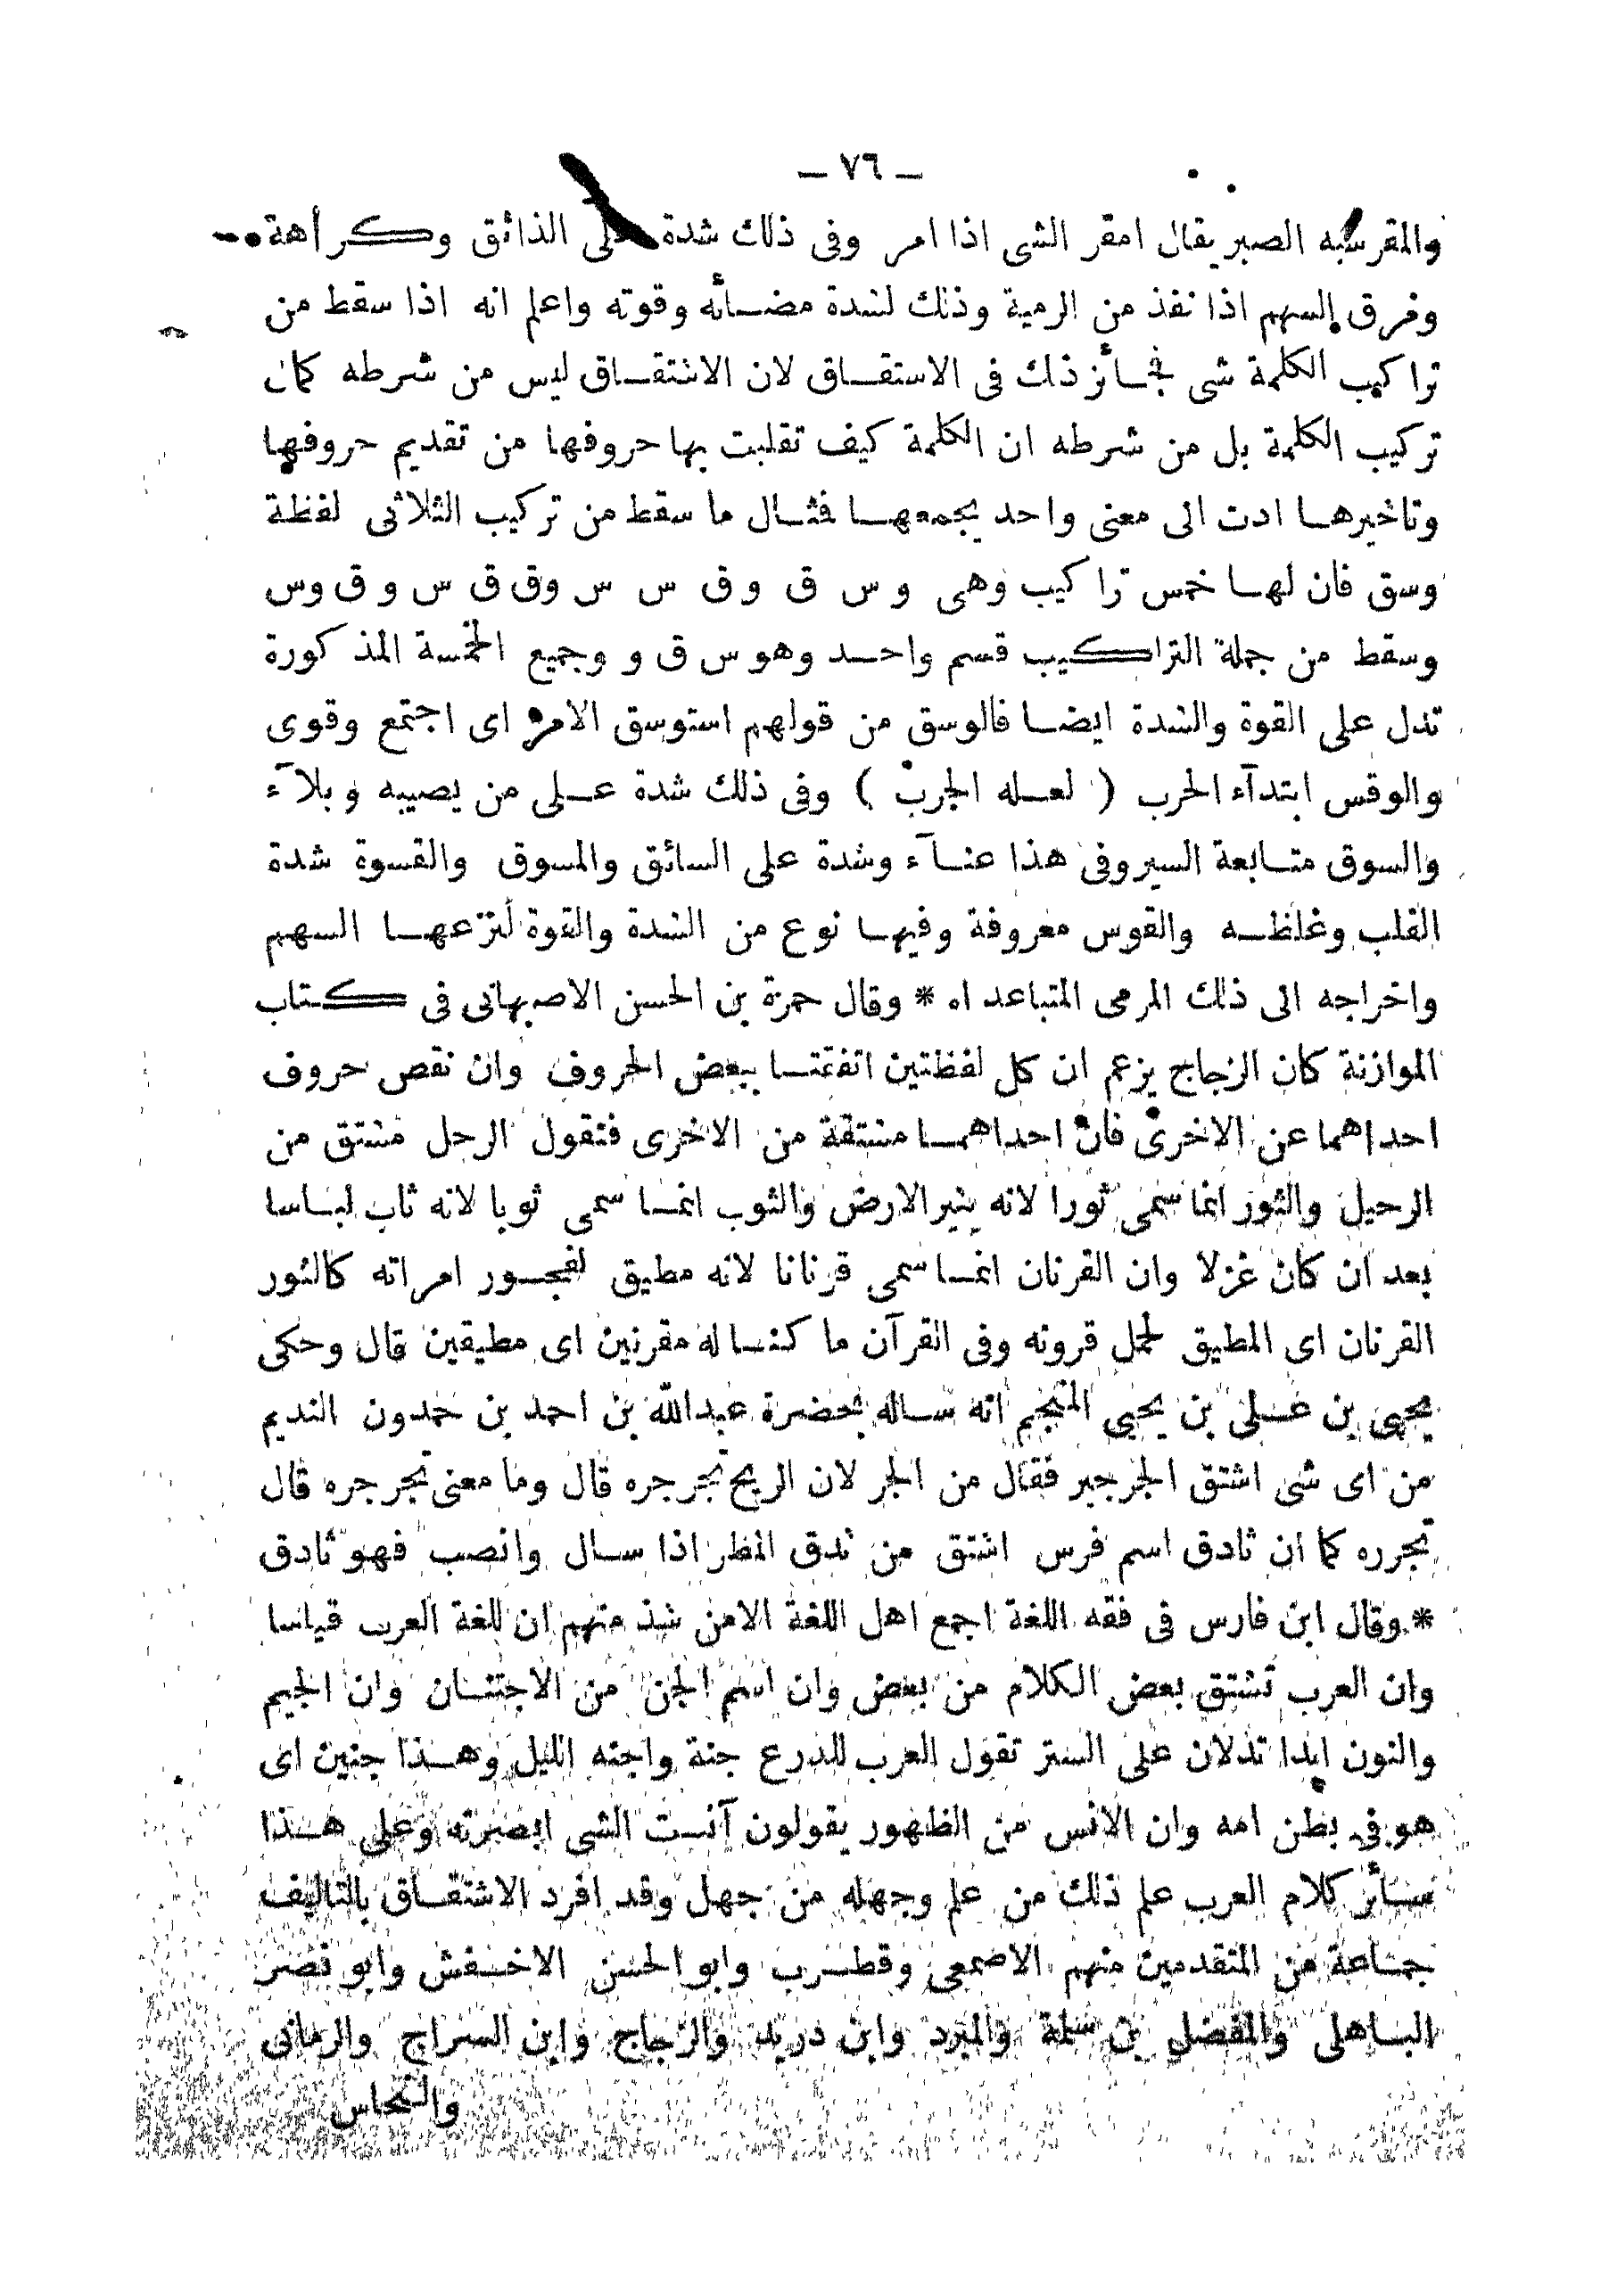 — ٧٦ —
والمقر شبه الصبر يقال امقر الشى اذا امر وفى ذلك شدة على الذائق وكراهة
ومرق السهم اذا نفذ من الرمية وذلك لشدة مضـائه وقوته واعلم انه اذا سقط من
تراكيب الكلمة شى فجـائز ذلك فى الاستقـاق لان الاشتقـاق ليس من شرطه كمال
تركيب الكلمة بل من شرطه ان الكلمة كيف تقلبت بها حروفها من تقديم حروفها
وتاخيرهـا ادت الى معنى واحد يجمعهـا فثـال ما سقط من تركيب الثلاثى لفظة
وسق فان لهـا خمس تراكيب وهى و س ق و ق س س وق ق س و ق وس
وسقط من جملة التراكيب قسم واحـد وهو س ق و وجميع الخمسة المذكورة
تدل على القوة والشدة ايضـا فالوسق من قولهم استوسق الامر اى اجتمع وقوى
والوقس ابتدآء الحرب ( لعـله الجرب ) وفى ذلك شدة عـلى من يصيبه وبلآء
والسوق متـابعة السير وفى هذا عنـآء وشدة على السائق والمسوق والقسوة شدة
القلب وغلظـه والقوس معروفة وفيهـا نوع من الشدة والقوة لنزعهـا السهم
واخراجه الى ذلك المرمى المتباعد اه * وقال حمزة بن الحسن الاصبهانى فى كـتاب
الموازنة كان الزجاج يزعم ان كل لفظتين اتفقتـا ببعض الحروف وان نقص حروف
احداهما عن الاخرى فان احداهمـا مشتقة من الاخرى فتقول الرحل مشتق من
الرحيل والثور انما سمى ثورا لانه يثير الارض والثوب انمـا سمى ثوبا لانه ثاب لبـاسا
بعد ان كان غزلا وان القرنان انمـا سمى قرنانا لانه مطيق لفجـور امراته كالثور
القرنان اى المطيق لحمل قرونه وفى القرآن ما كنـا له مقرنين اى مطيقين قال وحكى
يحيى بن عـلى بن يحيى المنجم انه سـاله بحضرة عبدالله بن احمد بن حمدون النديم
من اى شى اشتق الجرجير فقال من الجر لان الريح تجرجره قال وما معنى تجرجره قال
تجرره كما ان ثادق اسم فرس اشتق من ثدق المطر اذا سـال وانصب فهو ثادق
* وقال ابن فارس فى فقه اللغة اجمع اهل اللغة الامن شذ منهم ان للغة العرب قياسا
وان العرب تشتق بعض الكلام من بعض وان اسم الجن من الاجتنـان وان الجيم
والنون ابدا تدلان على الستر تقول العرب للدرع جنة واجنه الليل وهـذا جنين اى
هو فى بطن امه وان الانس من الظهور يقولون آنسـت الشى ابصرته وعلى هـذا
سـائر كلام العرب علم ذلك من علم وجهله من جهل وقد افرد الاشتقـاق بالتاليف
جمـاعة من المتقدمين منهم الاصمعى وقطـرب وابو الحسن الاخـفش وابو نصر
البـاهلى والمفضل بن سلمة والمبرد وابن دريد والزجاج وابن السراج والرمانى
والنحاس